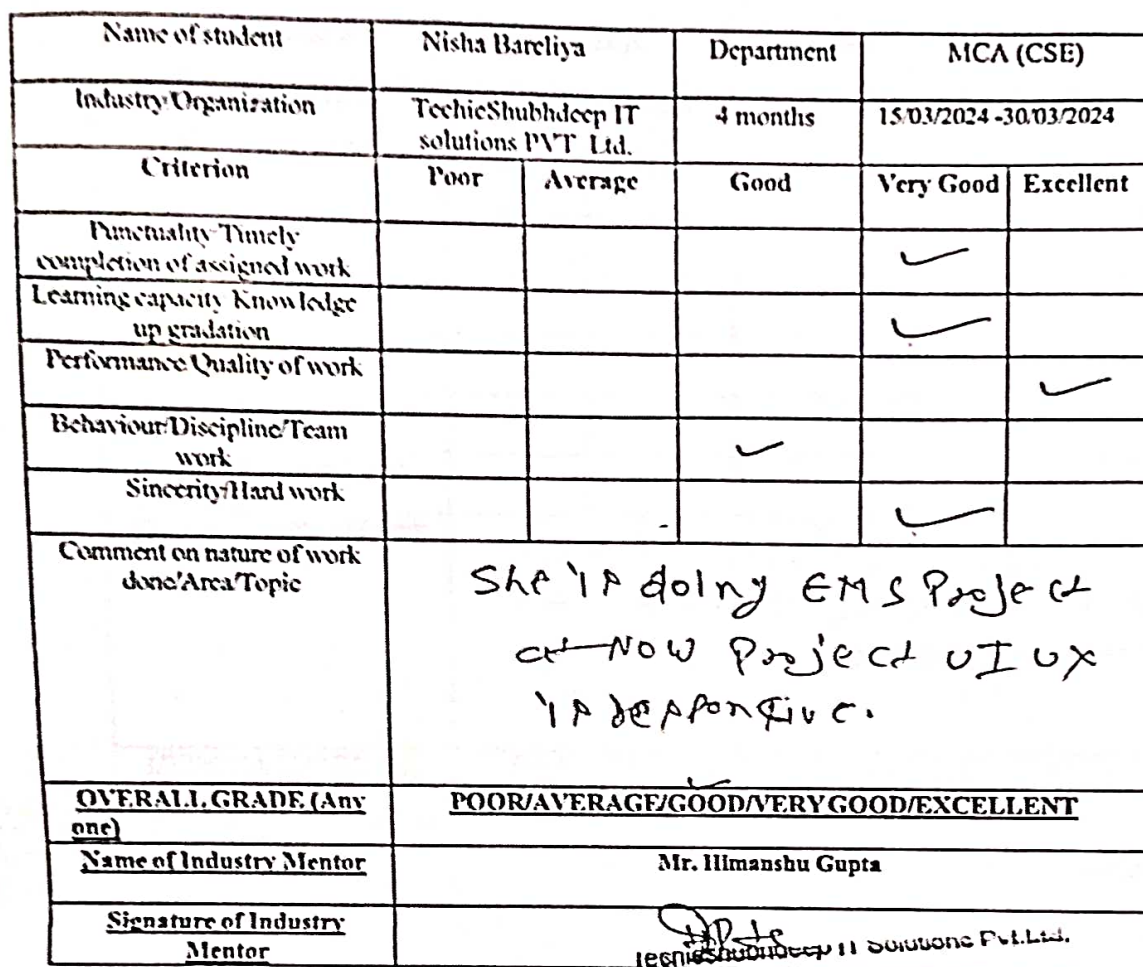 Name of student Nisha Bareliya Department MCA (CSE)
Industry/Organization TechieShubhdeep IT 4 months 15/03/2024 -30/03/2024
solutions PVT Ltd.
Criterion Poor Average Good Very Good Excellent
Punctuality/Timely
completion of assigned work
Learning capacity/Knowledge
up gradation
Performance/Quality of work
Behaviour/Discipline/Team
work
Sincerity/Hard work
Comment on nature of work
done/Area/Topic
She is doing EMS Project
at Now Project UI UX
is responsive.
OVERALL GRADE (Any
one)
POOR/AVERAGE/GOOD/VERY GOOD/EXCELLENT
Name of Industry Mentor Mr. Himanshu Gupta
Signature of Industry
Mentor
Techieshubhdeep IT Solutions Pvt.Ltd.